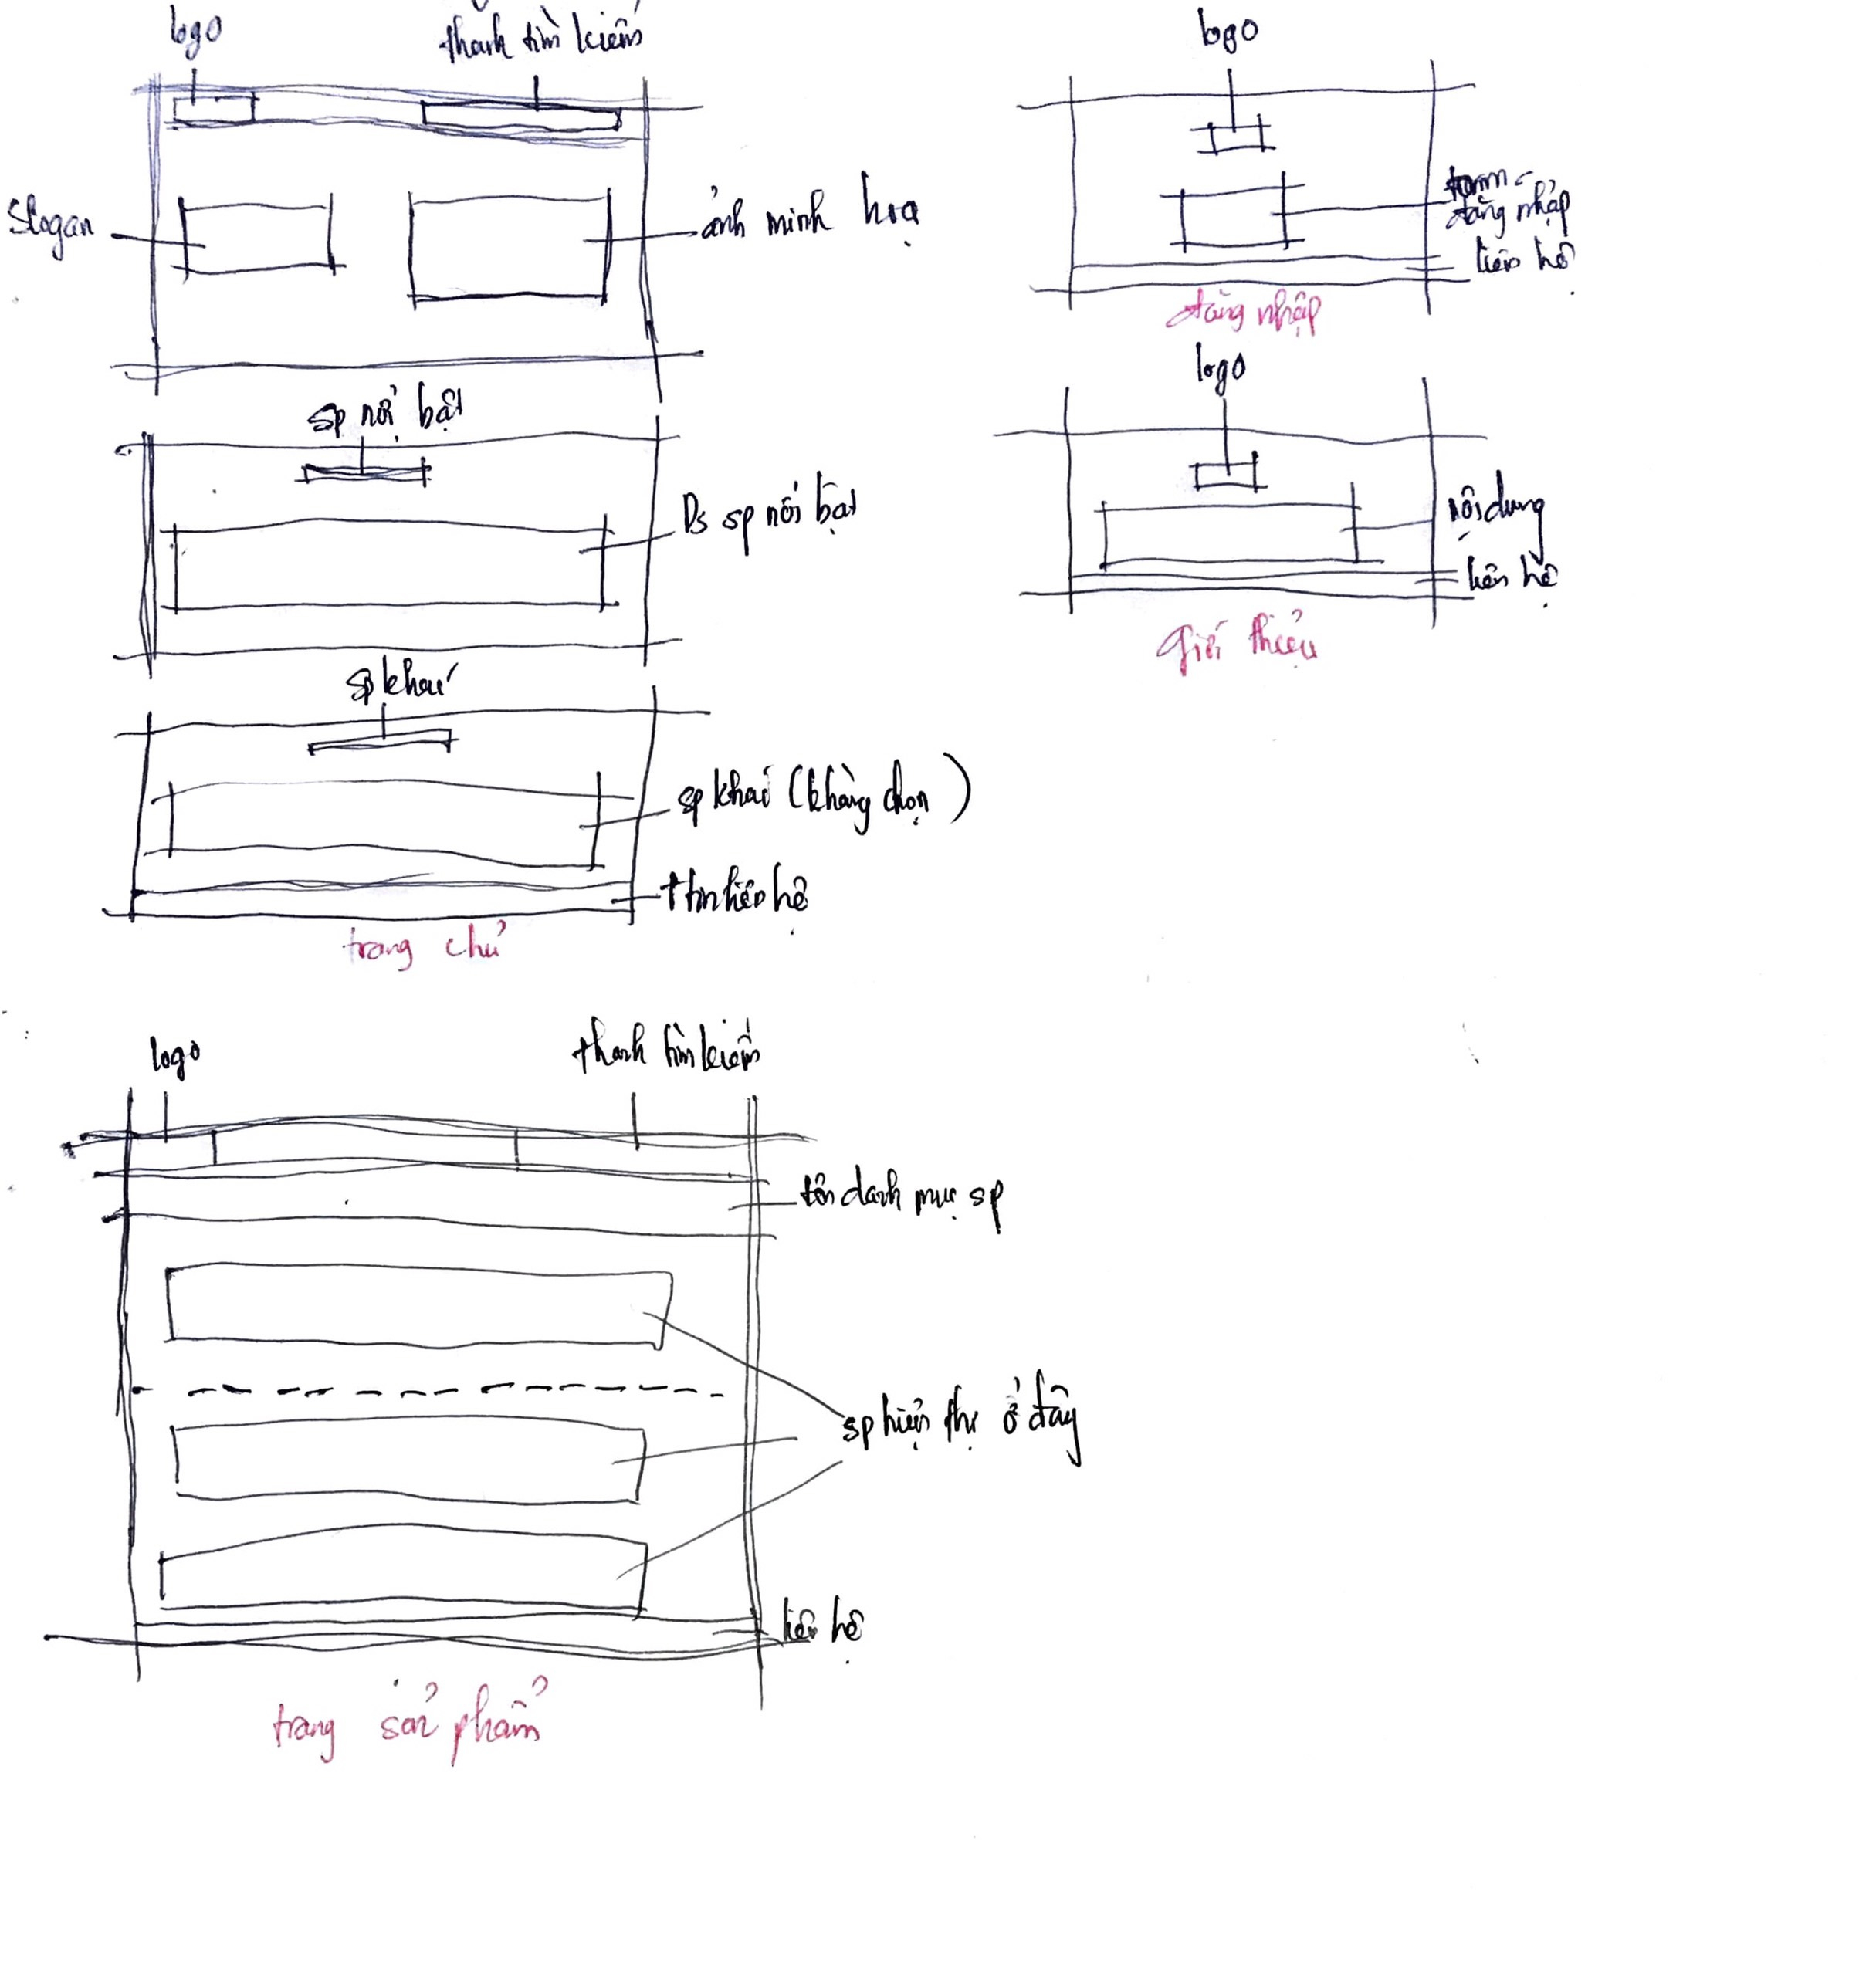 logo
thanh tìm kiếm
Slogan
ảnh minh hoạ
sp nổi bật
Ds sp nổi bật
sp khác
sp khác (không chọn)
ttin liên hệ
trang chủ
logo
form
đăng nhập
liên hệ
đăng nhập
logo
nội dung
liên hệ
giới thiệu
logo
thanh tìm kiếm
tên danh mục sp
sp hiện thị ở đây
liên hệ
trang sản phẩm